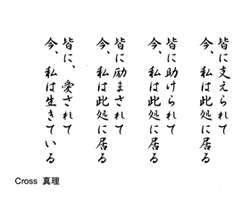 皆に支えられて
今、私は此処に居る
皆に助けられて
今、私は此処に居る
皆に励まされて
今、私は此処に居る
皆に、愛されて
今、私は生きている
Cross 真理